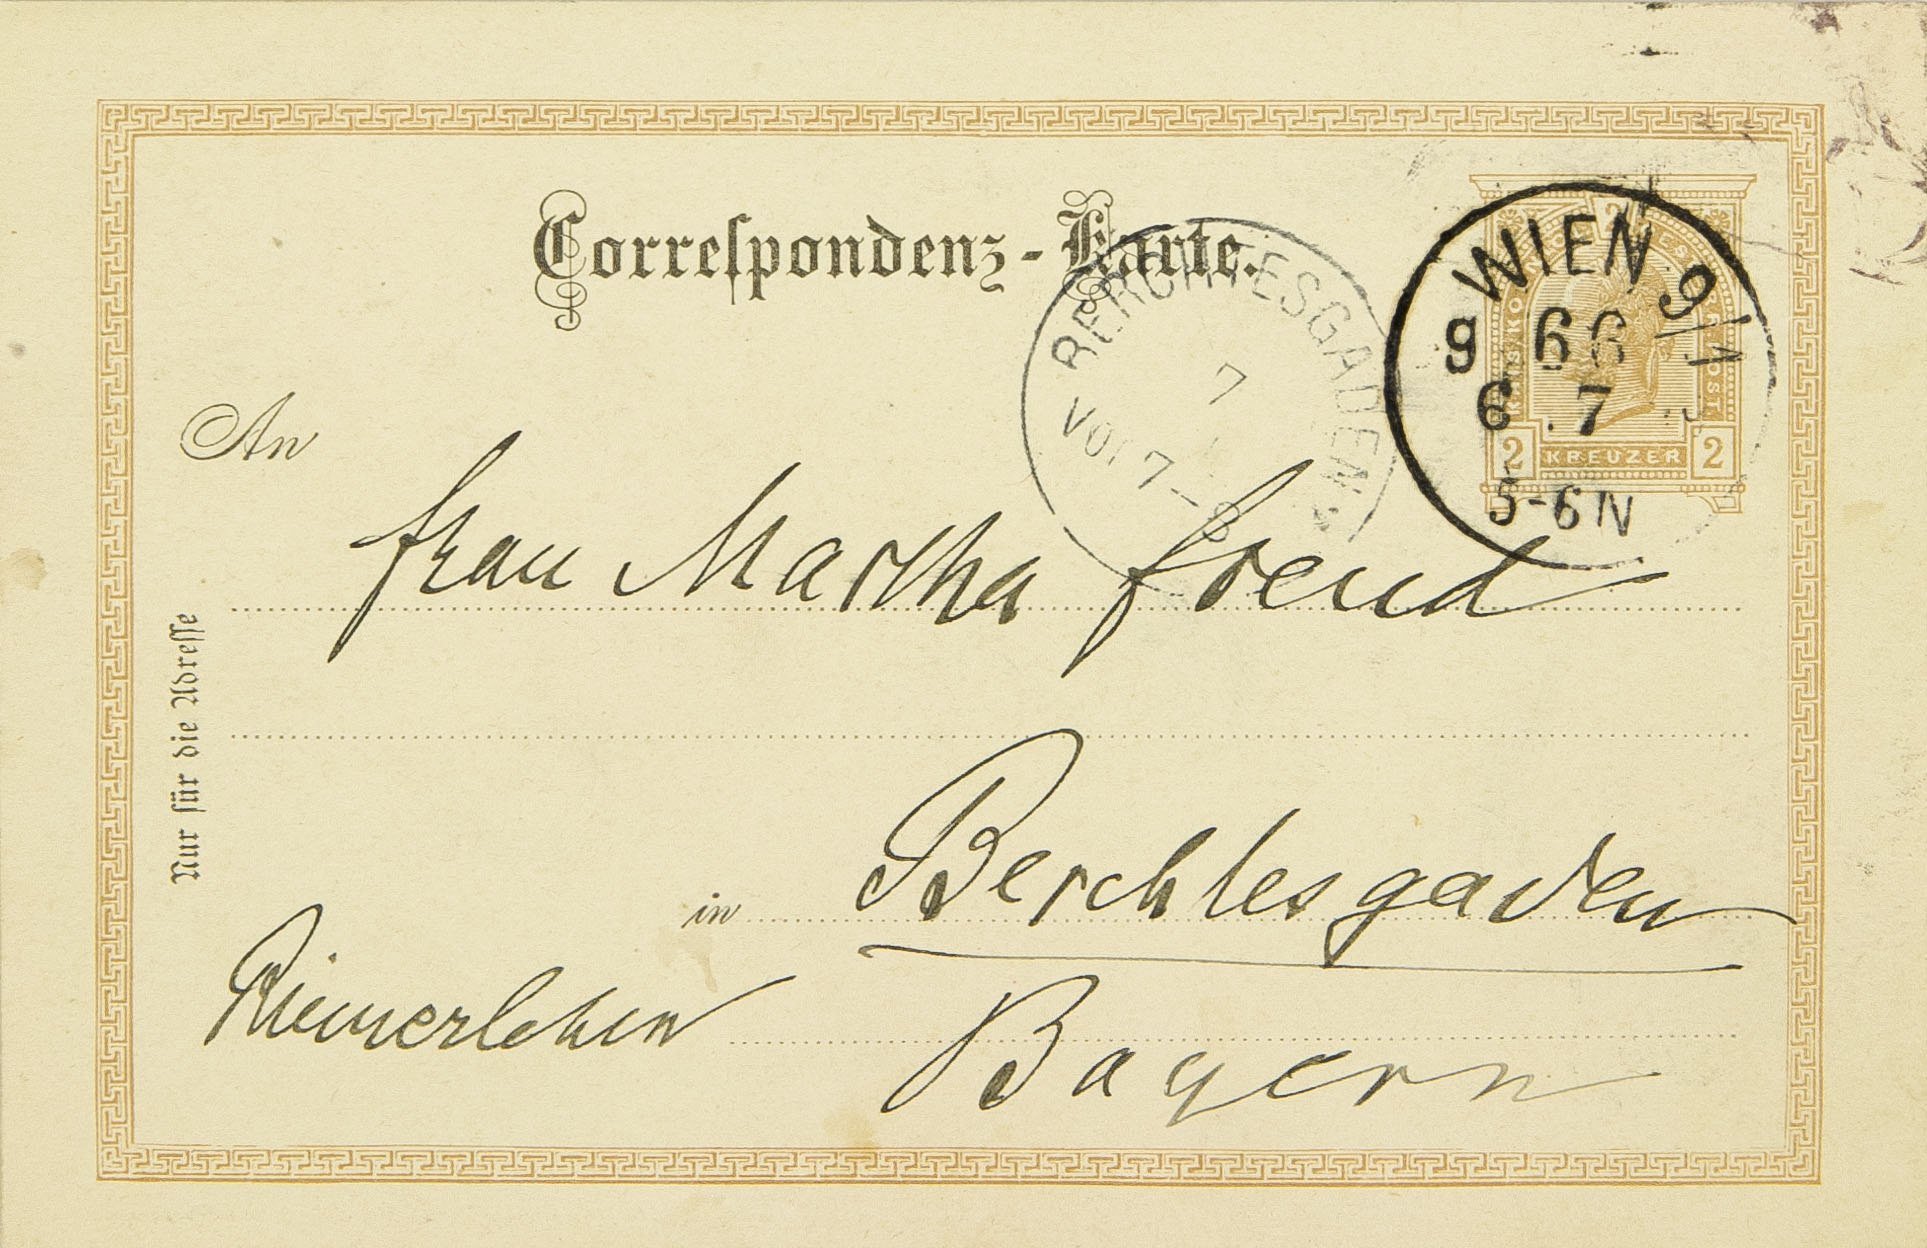 Correspondenz-Karte.
WIEN 9/1
9 66
6.7
5-6N
2
KREUZER
2
2
BERCHTESGADEN
7
Vor. 7-8
An
Frau Martha Freud
Nur für die Adresse
in Berchtesgaden
Riemerlehen
Bayern